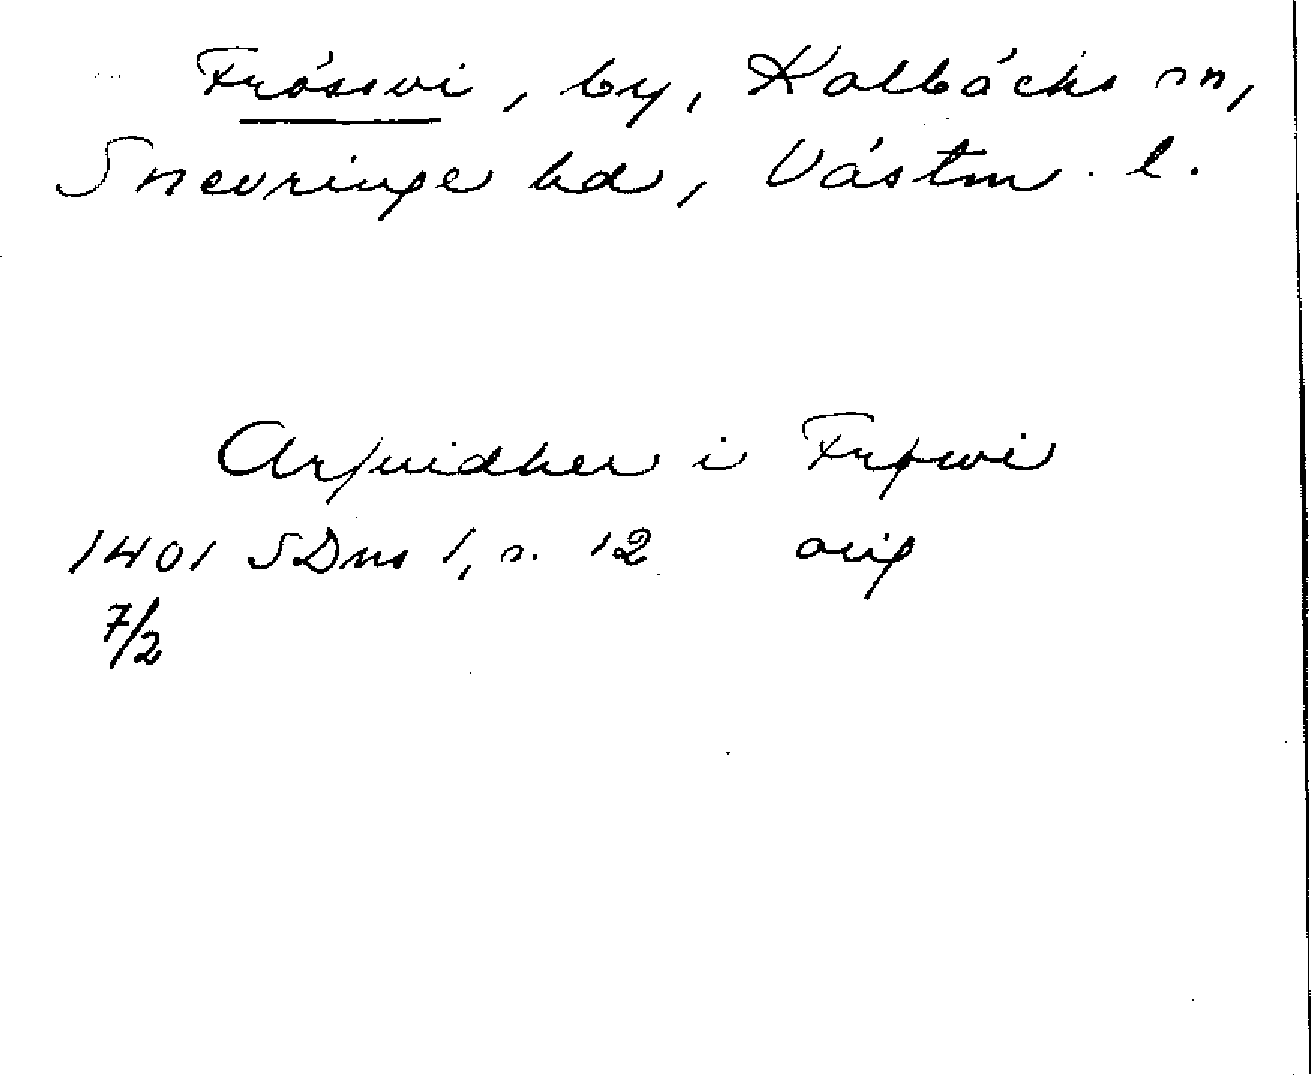 Frösvi, by, Kolbäcks sn,
Snevringe hd, Västm. l.
Arfuidher i Frøwi
1401 SDns 1, s. 12 orig
7/2